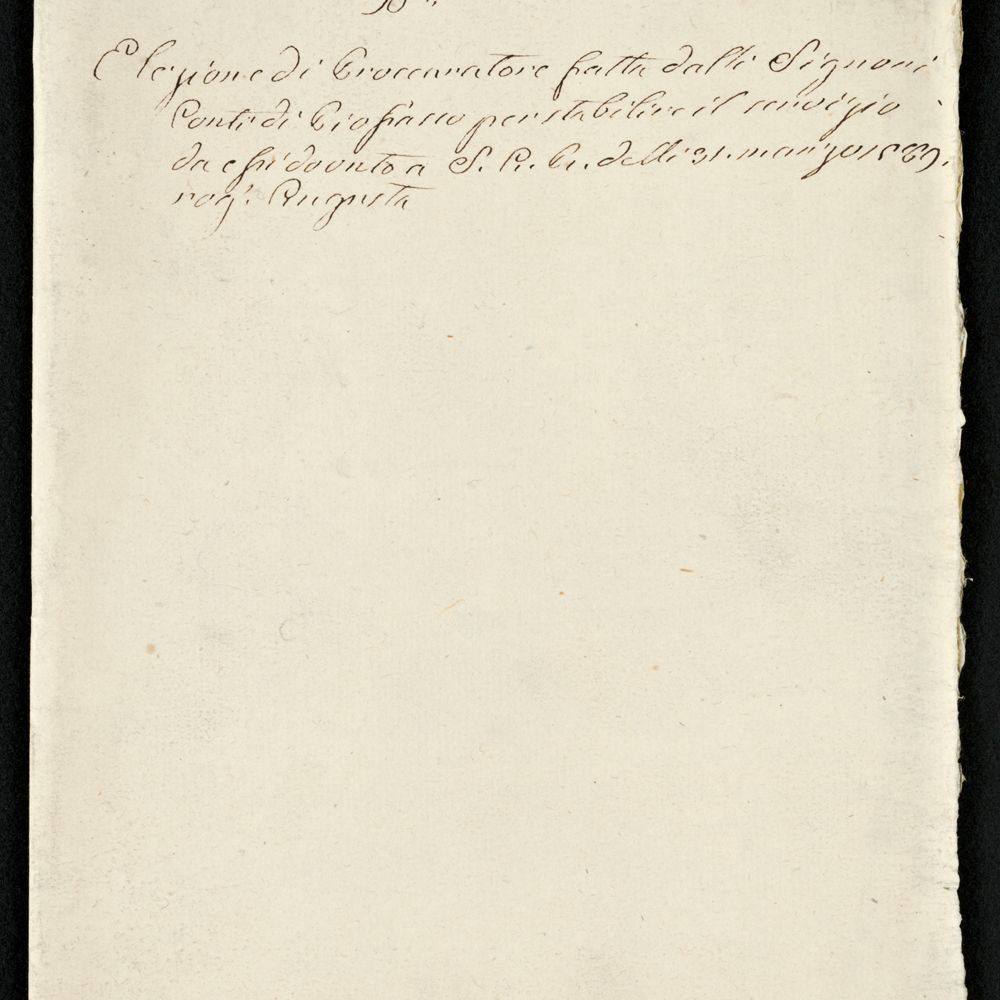 Elezione di Proccuratore fatta dalli Signori
Conti di Piosasco per stabilire il servizio
da essi dovuto a S. R. A. delli 31. marzo 1589.
rog.